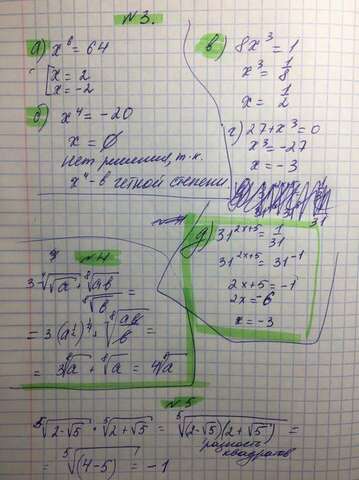 №3.
а) x⁶ = 64
[x = 2
x = -2
б) x⁴ = -20
x = ∅
нет решения, т.к.
x⁴ - в четной степени
в) 8x³ = 1
x³ = 1/8
x = 1/2
г) 27 + x³ = 0
x³ = -27
x = -3
д) 31²ˣ⁺⁵ = 1/31
31²ˣ⁺⁵ = 31⁻¹
2x + 5 = -1
2x = -6
x = -3
№4
= 3⁸√a + ⁸√a = 4⁸√a
№5
⁵√(2-√5) · ⁵√(2+√5) = ⁵√((2-√5)(2+√5)) =
разность
квадратов
= ⁵√(4-5) = -1